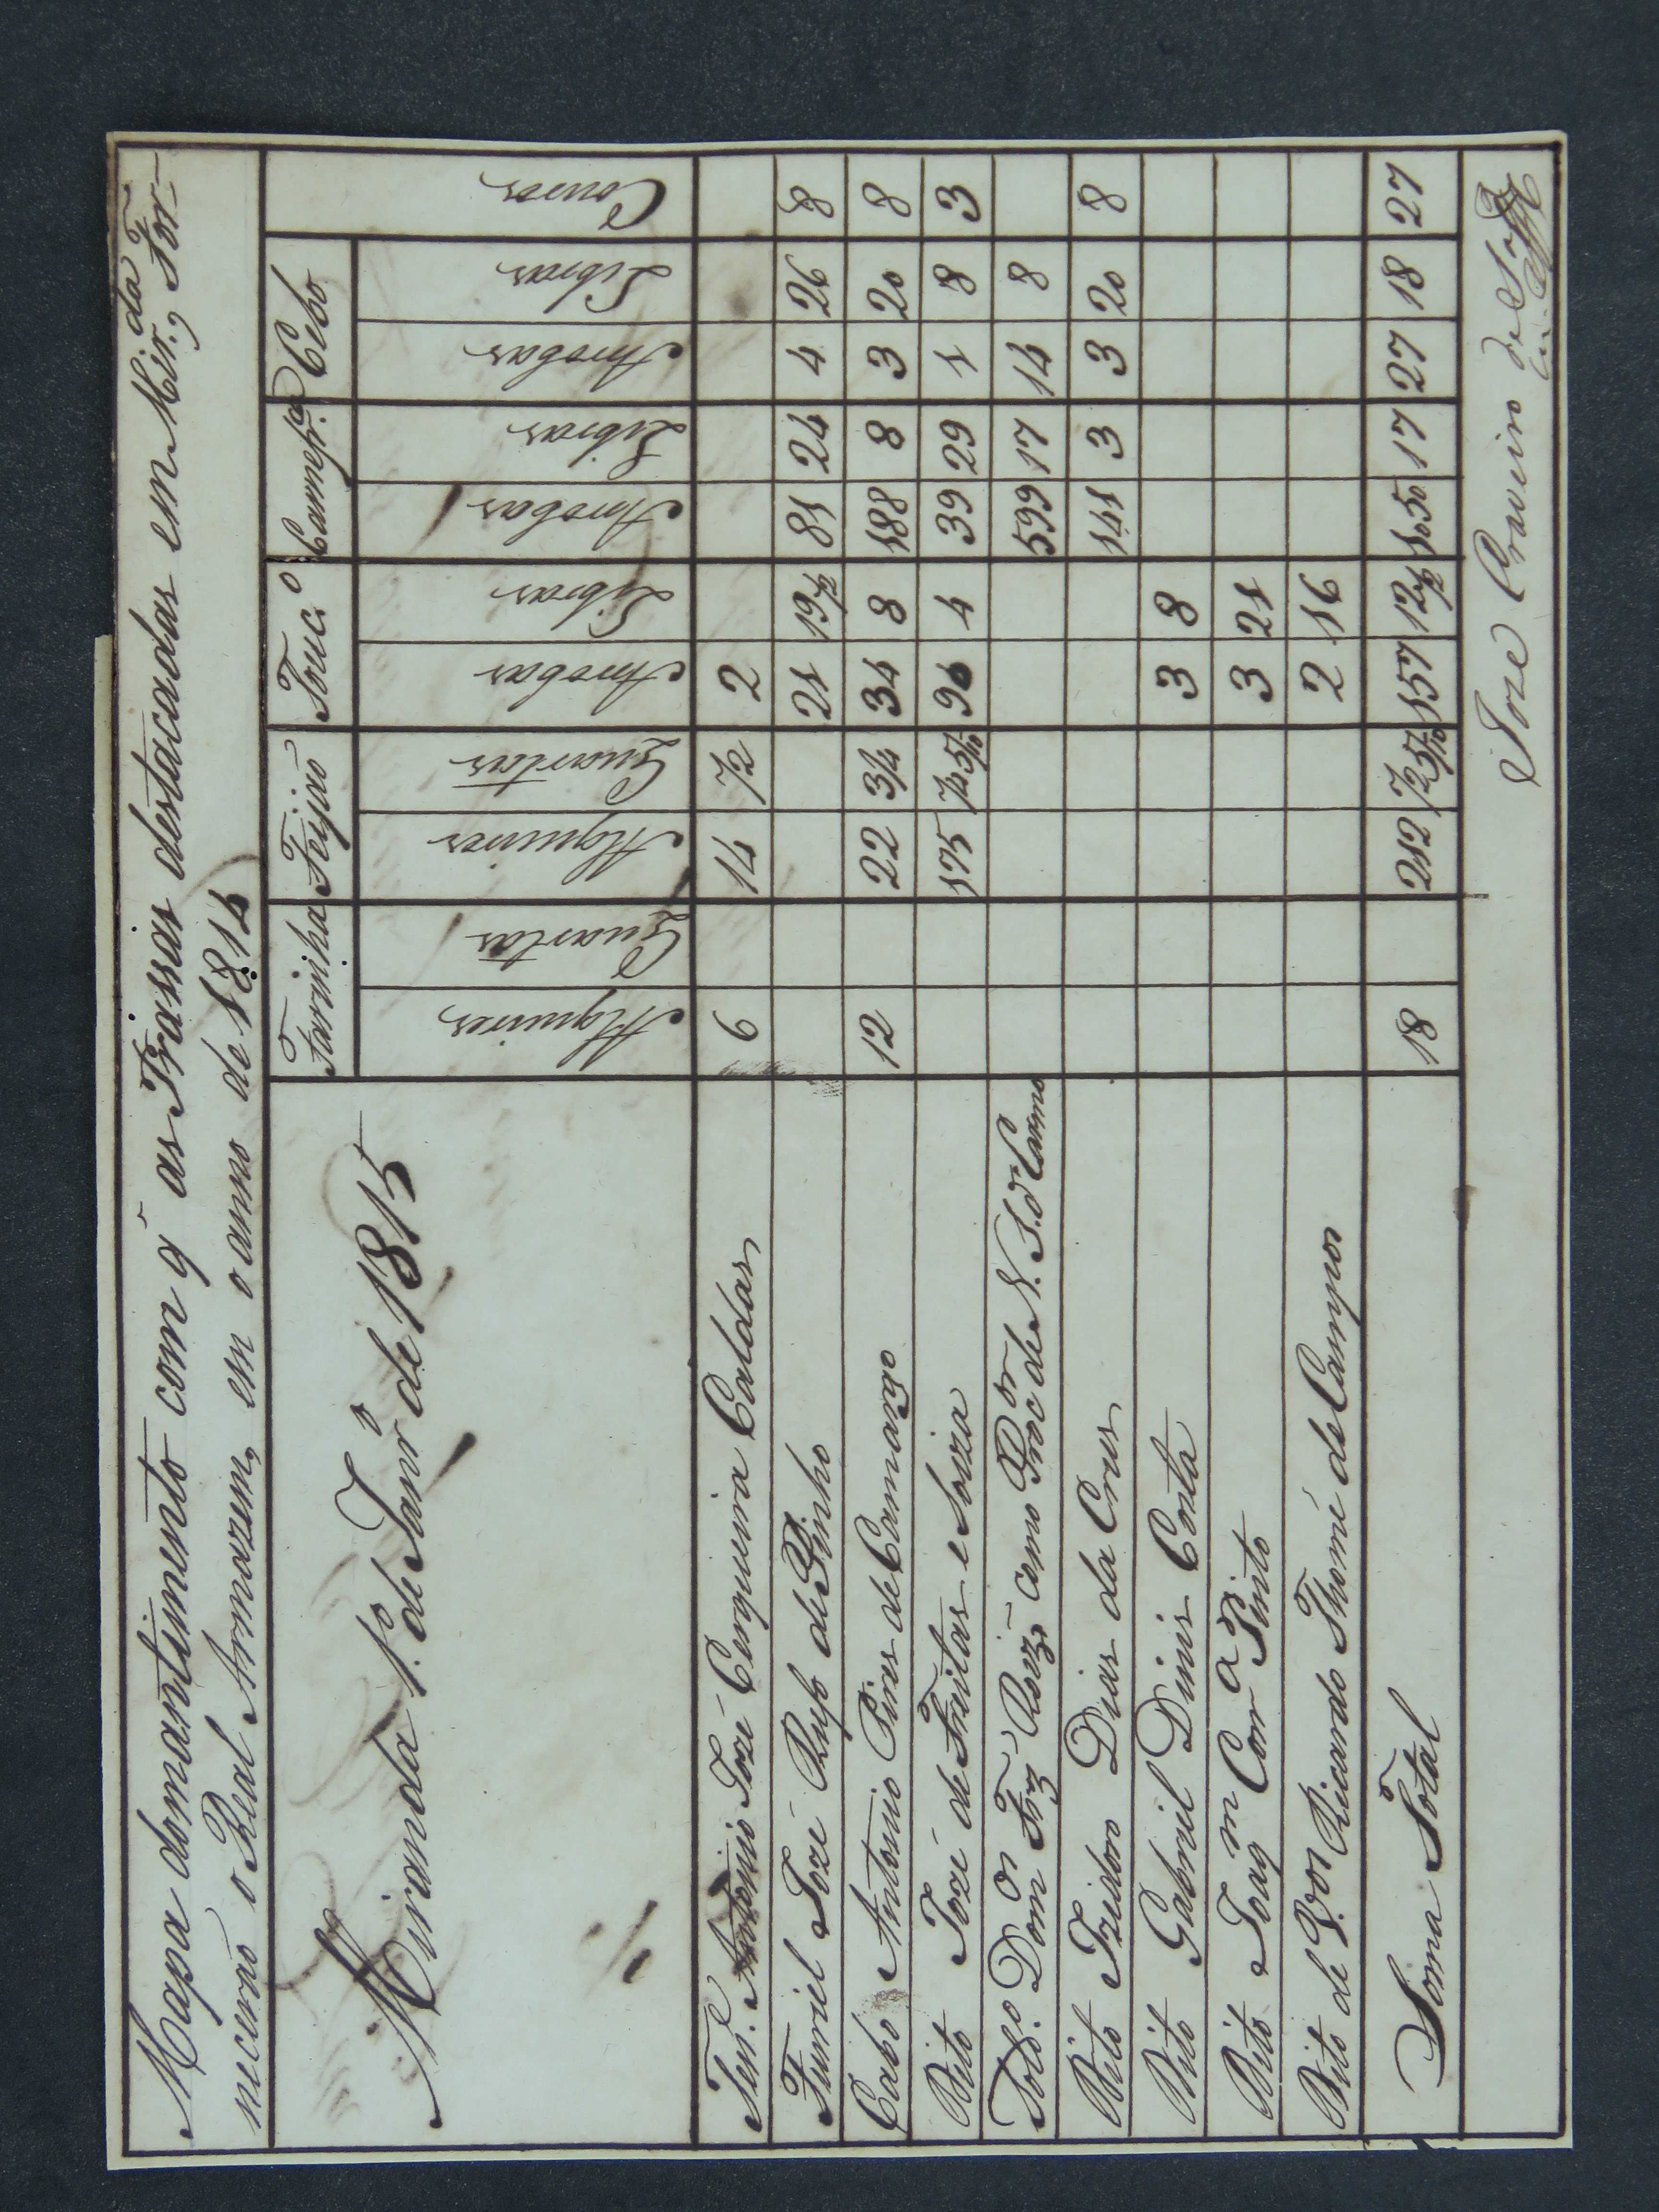 Mapa do mantimento com q̃ as Prassas destacadas em Mir.da For-
necerão o Real Armazem, em o anno de 1814
Miranda 1.º de Janr.º de 1815
Farinha Feijaõ Touc.º Carnefr.ca Cebo Couros
Alqueires Quartas Alqueires Quartas Arrobas Libras Arrobas Libras Arrobas Libras
Ten.e Antonio Jozé Cerqueira Caldas 6 14 1/2 2
Furriel Jozé Rufo de Pinho 21 19 1/2 81 24 4 26 8
Cabo Antonio Pires de Camargo 12 22 3/4 34 8 188 8 3 20 8
Dito Jozé de Freitas e Souza 175 1/2 5/10 90 4 39 29 1 8 3
Sold.º Dom.os Frz' Roiz' como Proc.or de N. S. do Carmo 599 17 14 8
Dito Izidoro Dias da Crus 141 3 3 20 8
Dito Gabriel Dinis Costa 3 8
Dito Joaq.m Corr.a Pinto 3 21
Dito de Ricardo Thomé de Campos 2 16
Soma Total 18 212 1/2 5/10 157 12 1/2 1050 17 27 18 27
Joze Craveiro de Sá